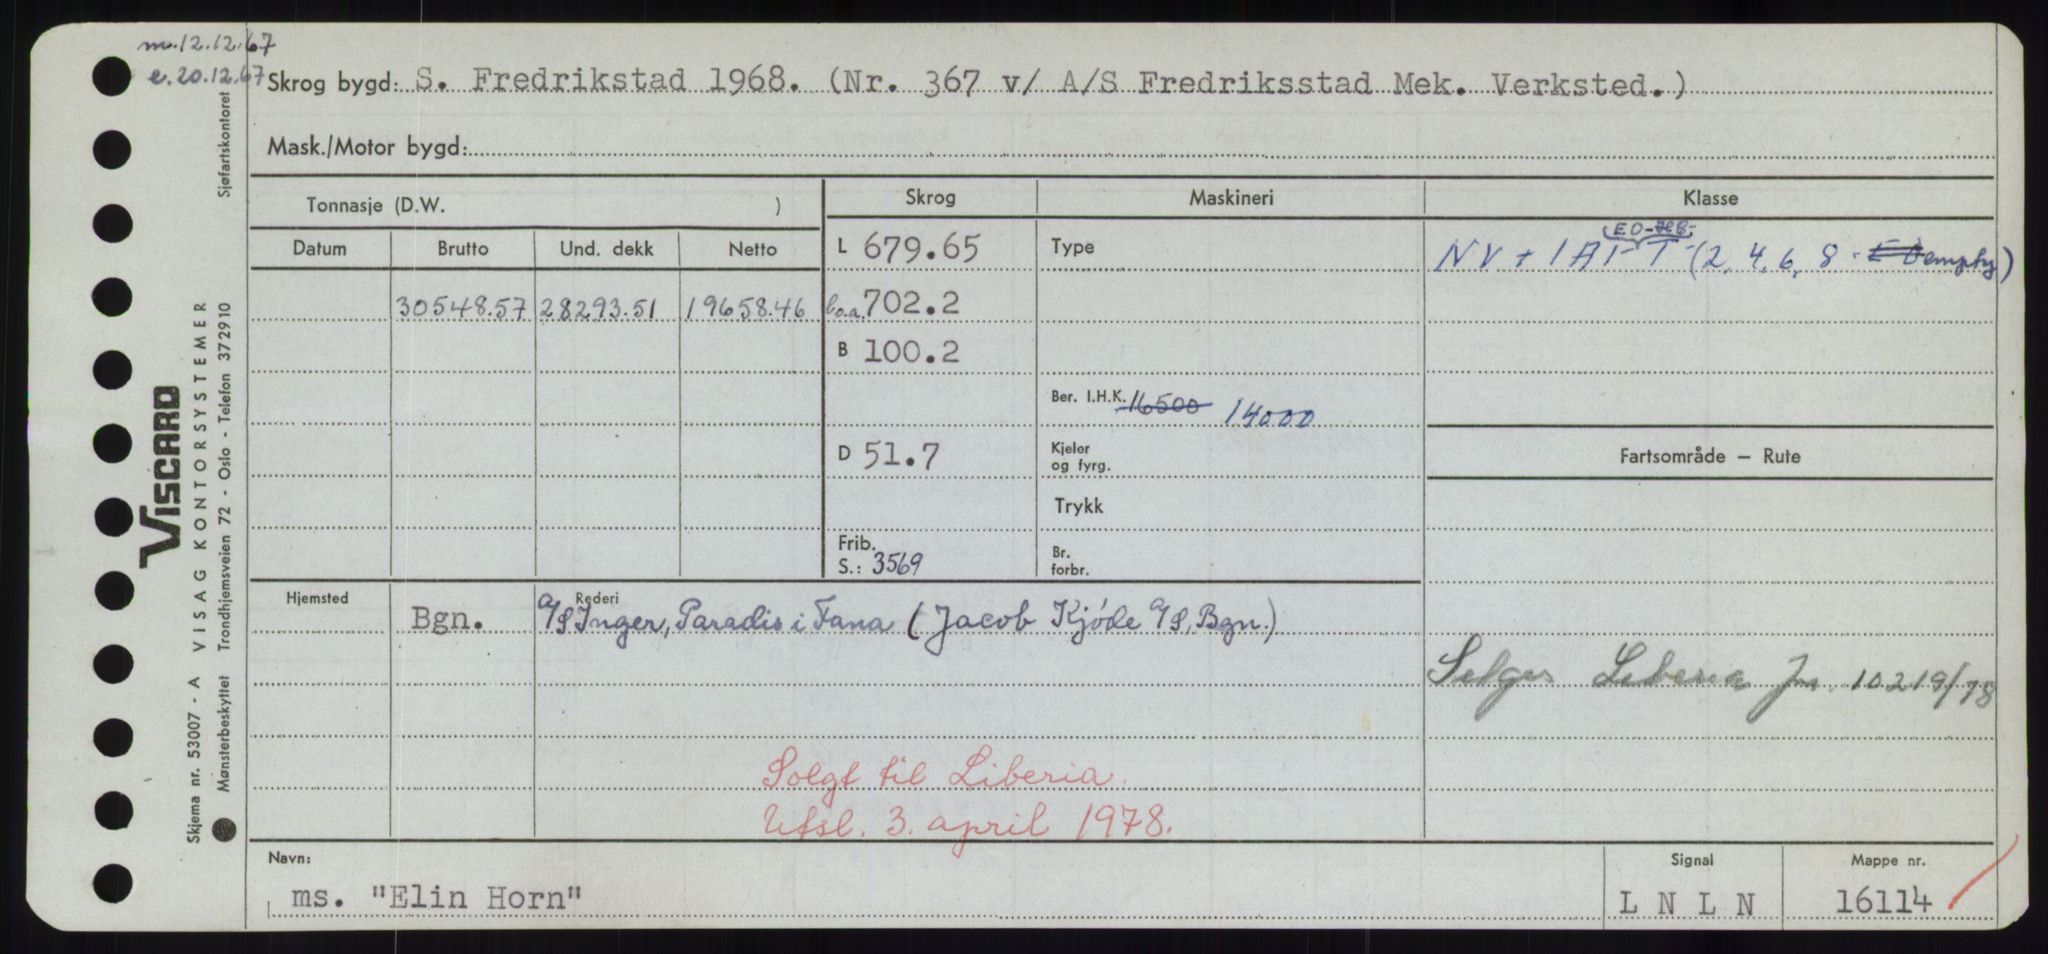 m. 12.12.67
e. 20.12.67
Skrog bygd: S. Fredrikstad 1968. (Nr. 367 v/ A/S Fredriksstad Mek. Verksted.)
Mask./Motor bygd:
Tonnasje (D.W. )
Skrog
Maskineri
Klasse
Datum
Brutto
Und. dekk
Netto
L 679.65
Type
EO-
NV + 1A1 - T - (2, 4, 6, 8 - empty)
30548.57 28293.51 19658.46
l.o.a. 702.2
B 100.2
Ber. I.H.K. 16500 14000
D 51.7
Kjeler
og fyrg.
Fartsområde – Rute
Trykk
Frib.
S.: 3569
Br.
forbr.
Hjemsted
Rederi
Bgn. A/S Inger, Paradis i Fana (Jacob Kjøde A/S, Bgn.)
Selges Liberia Jn. 10219/78
Solgt til Liberia.
Utsl. 3. april 1978.
Navn:
ms. "Elin Horn"
Signal
L N L N
Mappe nr.
16114
VISCARD
VISAG KONTORSYSTEMER
Skjema nr. 53007 - A
Mønsterbeskyttet
Trondhjemsveien 72 - Oslo - Telefon 372910
Sjøfartskontoret